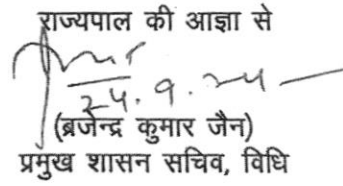 राज्यपाल की आज्ञा से
24.9.24
(ब्रजेन्द्र कुमार जैन)
प्रमुख शासन सचिव, विधि